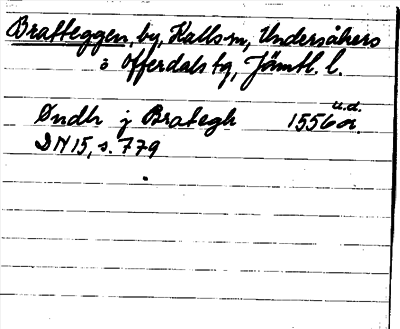 Bratteggen, by, Kalls sn, Undersåkers
o Offerdals tg, Jämtl. l.
Øndh j Brategh 1556 u.d. or.
DN 15, s. 779